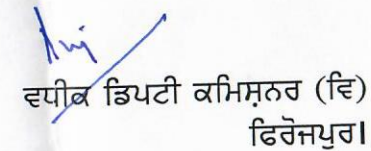 ਵਧੀਕ ਡਿਪਟੀ ਕਮਿਸ਼ਨਰ (ਵਿ)
ਫਿਰੋਜਪੁਰ।